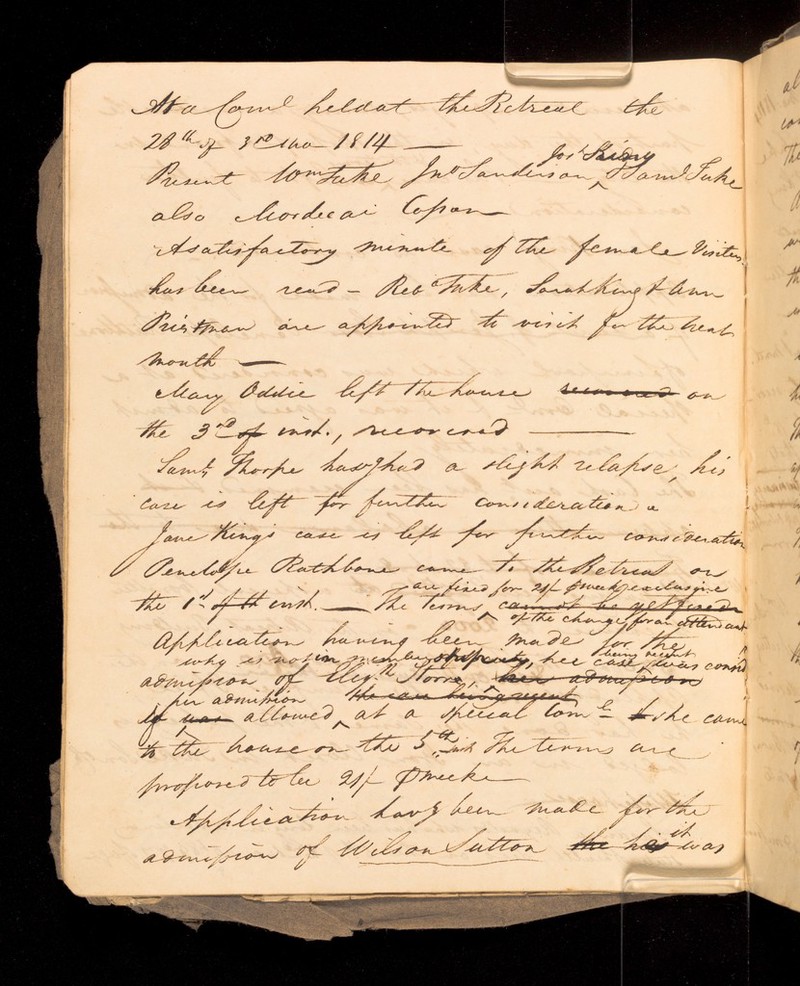 At a Com.e held at the Retreat the
28th of 3rd mo 1814 —
Present Wm Tuke Jno Sanderson, ^ Saml Tuke
also Mordecai Copan
A satisfactory minute of the female Visiters
has been read – Reba Tuke, Sarah King & Ann
Priestman are appointed to visit for the next
month —
Mary Oddie left the house recovered on
the 3rd of inst., recovered —
Saml Thorpe havg had a slight relapse, his
case is left for further consideration
Jane King's case is left for further consideration
Penelope Rathbone came to the Retreat on
are fixed for 21/ ⅌ week exclusive
the 1st of inst. — The terms ^ cannot be yet fixed
of the charge for an attendant
Application having been made for the
why is not in membership, her case being recent was consid
admission of Elizth, her admission
per admission the case being recent
if was allowed ^ at a special Come she came
to the house on the 5th inst The terms are
proposed to be 21/ ⅌ week
Application havg been made for the
admission of Wilson Sutton the his it was